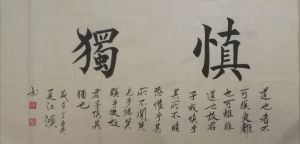 慎獨
道也者不
可須臾離
也可離非
道也故君
子戒慎乎
其所不睹
恐懼乎其
所不聞莫
見乎隱莫
顯乎微故
君子慎其
獨也
夏江
書